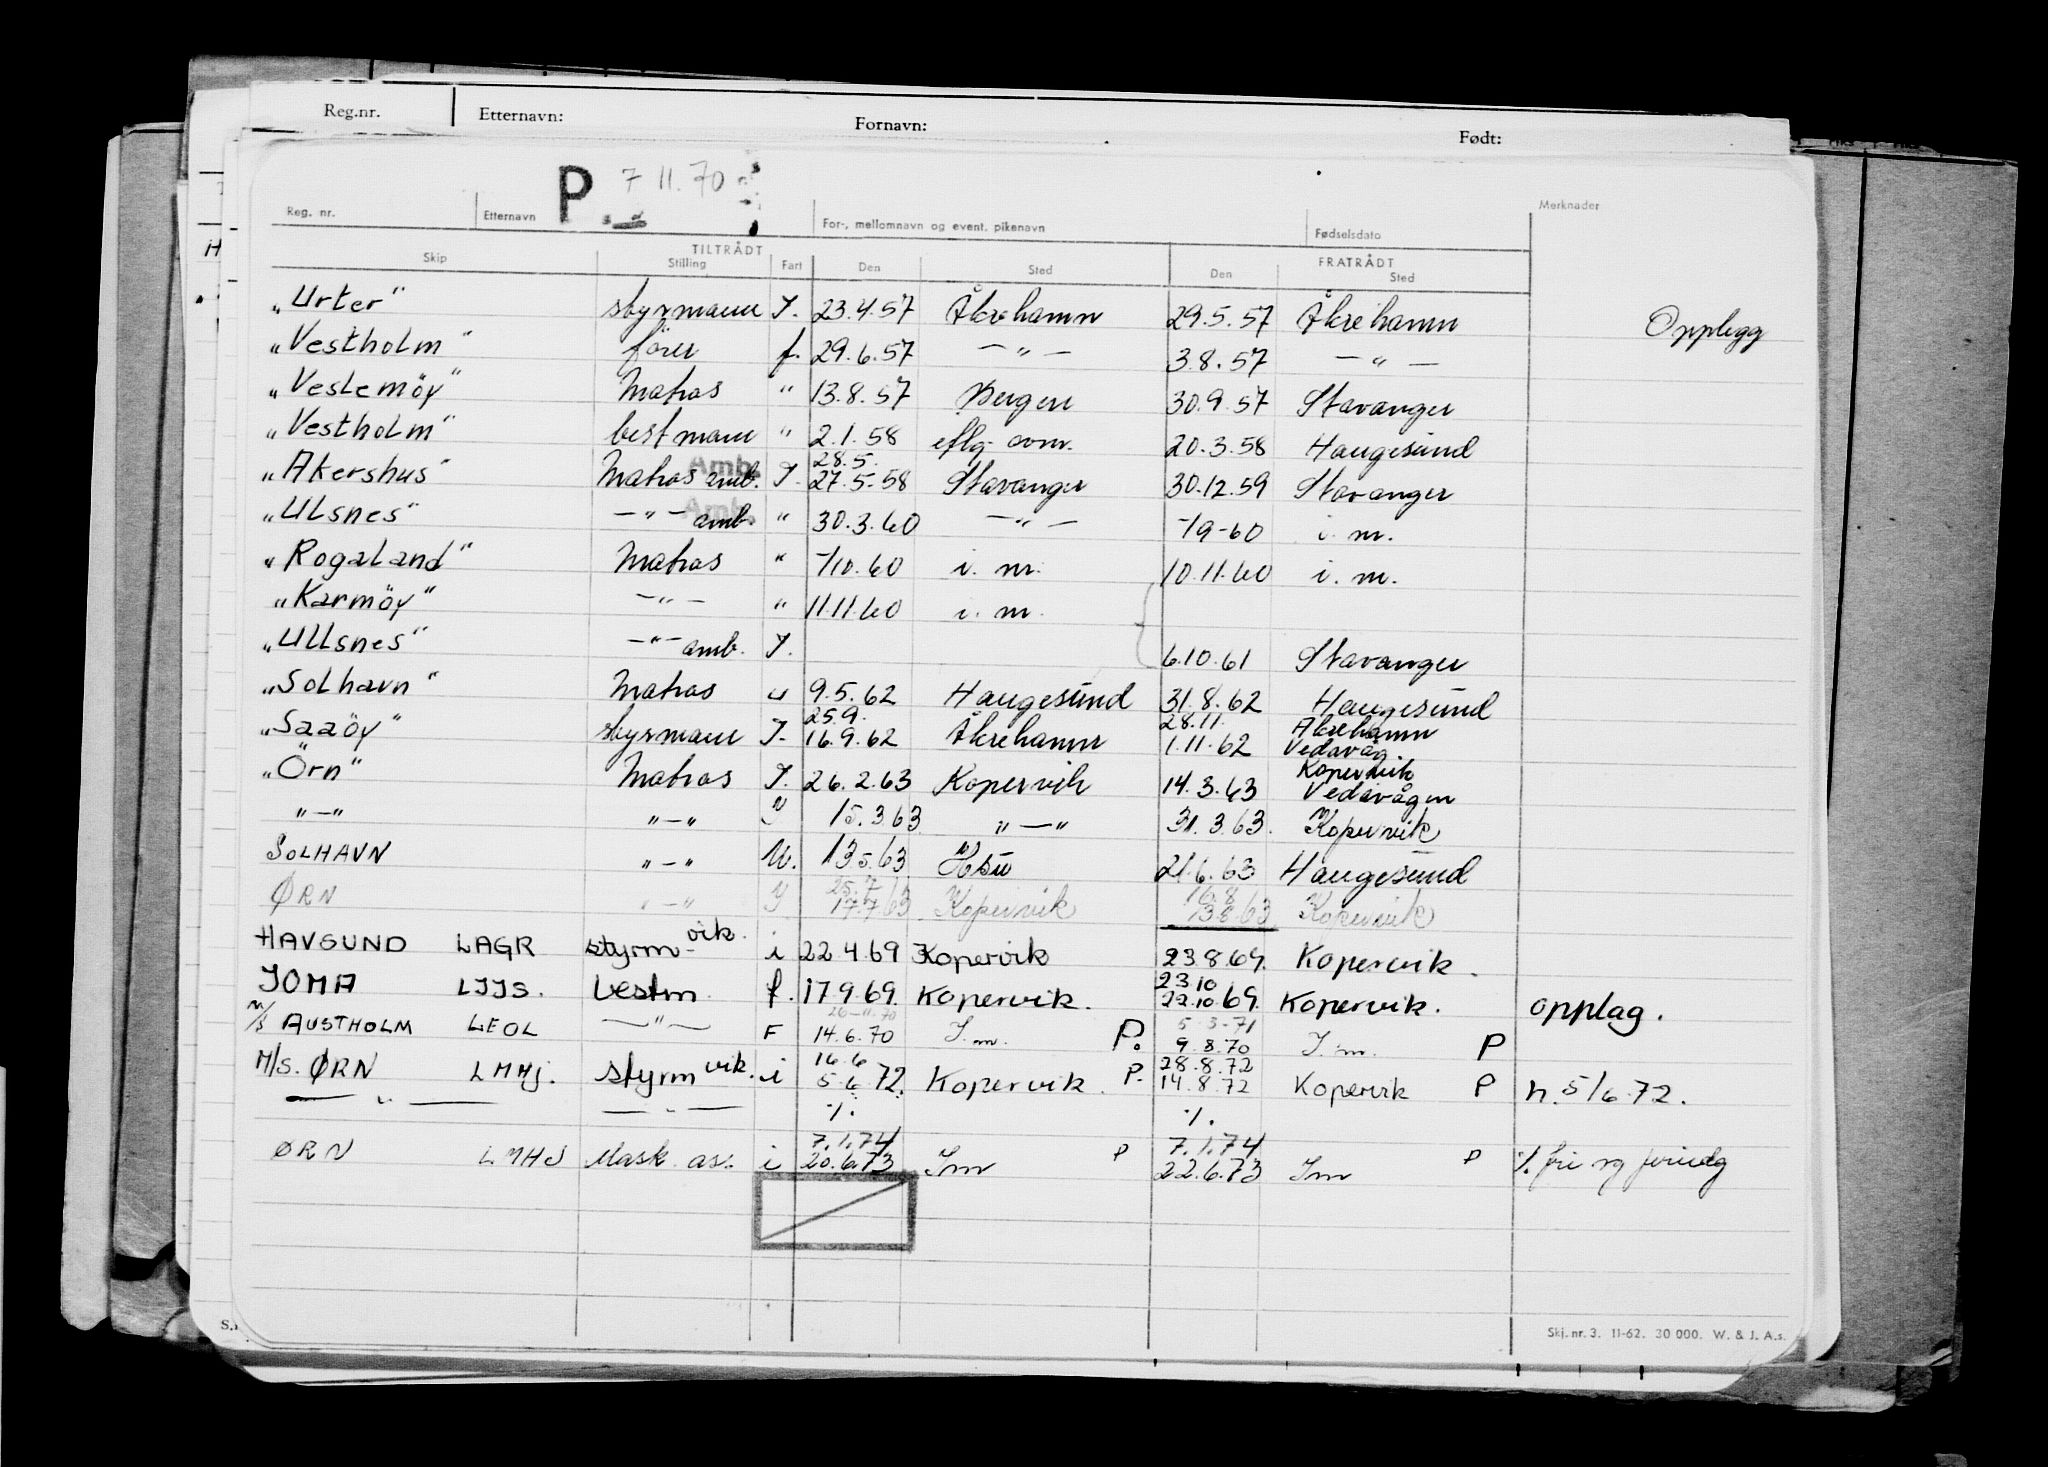 Reg.nr. Etternavn: Fornavn: Født:
P 7 11.70
Reg. nr. Etternavn For-, mellomnavn og event. pikenavn Fødselsdato Merknader
TILTRÅDT FRATRÅDT
Skip Stilling Fart Den Sted Den Sted
„Urter" styrmann I. 23.4.57 Åkrehamn 29.5.57 Åkrehamn Opplegg
„Vestholm" fører f. 29.6.57 — " — 3.8.57 — " —
„Vestemöy" Matros " 13.8.57 Bergen 30.9.57 Stavanger
„Vestholm" bestmann " 2.1.58 20.3.58 Haugesund
Amb. 28.5.
„Akershus" Matros amb. I. 27.5.58 Stavanger 30.12.59 Stavanger
Amb.
„Ulsnes" — " — amb. " 30.3.60 — " — -/9-60 i. m.
„Rogaland" Matros " -/10.60 i. m. 10.11.60 i. m.
„Karmöy" — " — " 11.11.60 i. m.
„Ullsnes" — " — amb. I. 6.10.61 Stavanger
„Solhavn" Matros u 9.5.62 Haugesund 31.8.62 Haugesund
25.9. 28.11. Åkrehamn
„Saaöy" styrmann I. 16.9.62 Åkrehamn 1.11.62 Vedavåg
Kopervik
„Örn" Matros I. 26.2.63 Kopervik 14.3.63 Vedavågen
"—" "—" I 15.3.63 "—" 31.3.63. Kopervik
SOLHAVN "—" U. 13.5.63 21.6.63 Haugesund
25.7 16.8
ØRN "—" I 17.7.63 Kopervik 13.8.63 Kopervik
HAVSUND LAGR styrm- vik. i 22 4.69 Kopervik 23.8.69. Kopervik.
23 10
JOMA LJJS. bestm f. 17 9.69. Kopervik. 22.10.69. Kopervik. opplag.
26-11.70 5-3-71
M/S AUSTHOLM LEOL — " — F 14.6.70 I.m. P. 9.8.70 I.m. P
16.6 28.8.72
M/S. ØRN LMHJ. styrm vik. i 5.6.72. Kopervik. P. 14.8.72 Kopervik P n. 5/6.72.
— " — — " — ./. ./.
7.1.74 7.1.74
ØRN LMHJ Mask. ass. i 20.6.73 Im P 22.6.73 Im P ./. fri og
Skj. nr. 3. 11-62. 30 000. W. & J. A.s.